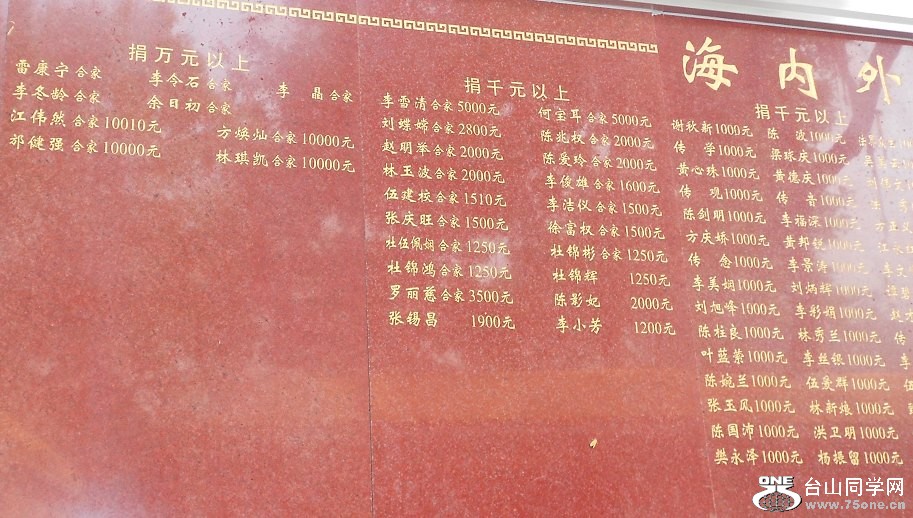 海内外
捐万元以上
雷康宁合家 李令石合家 李晶合家
李冬龄合家 余日初合家
江伟然合家10010元 方焕灿合家10000元
邬健强合家10000元 林琪凯合家10000元
捐千元以上
李雷清合家5000元 何宝耳合家5000元
刘蝶嫦合家2800元 陈兆权合家2000元
赵明举合家2000元 陈爱玲合家2000元
林玉波合家2000元 李俊雄合家1600元
伍建校合家1510元 李洁仪合家1500元
张庆旺合家1500元 徐富权合家1500元
杜伍佩娴合家1250元 杜锦彬合家1250元
杜锦鸿合家1250元 杜锦辉 1250元
罗丽慈合家3500元 陈影妃 2000元
张锡昌 1900元 李小芳 1200元
捐千元以上
谢秋新1000元 陈波1000元
传学1000元 梁球庆1000元
黄心珠1000元 黄德庆1000元
传观1000元 传音1000元
陈剑明1000元 李福深1000元
方庆娇1000元 黄邦锐1000元
传念1000元 李景涛1000元
李美娴1000元 刘炳辉1000元
刘旭峰1000元 李彩娟1000元
陈柱良1000元 林秀兰1000元 传
叶蓝紫1000元 李丝银1000元 李
陈婉兰1000元 伍爱群1000元 伍
张玉凤1000元 林新娘1000元
陈国沛1000元 洪卫明1000元
樊永泽1000元 杨振留1000元
ONE 台山同学网
www.75one.cn